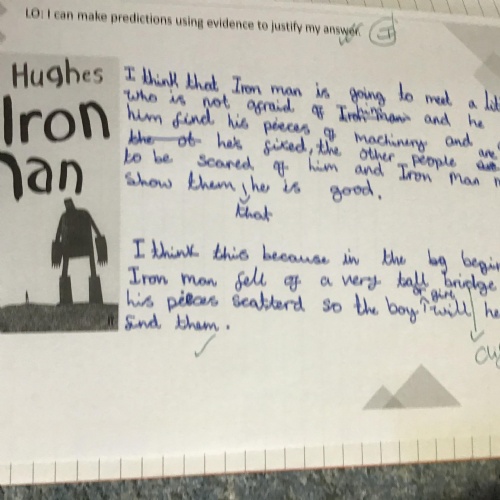 LO: I can make predictions using evidence to justify my answer.
Hughes
Iron
man
I think that Iron man is going to meet a
who is not afraid of Iron man and he
him find his peeces of machinery and
the ot he's fixed, the other people are
to be scared of him and Iron Man
show them he is good.
that
I think this because in the bg
Iron man fell of a very tall bridge
his peices scatterd so the boy will
or girl
find them.